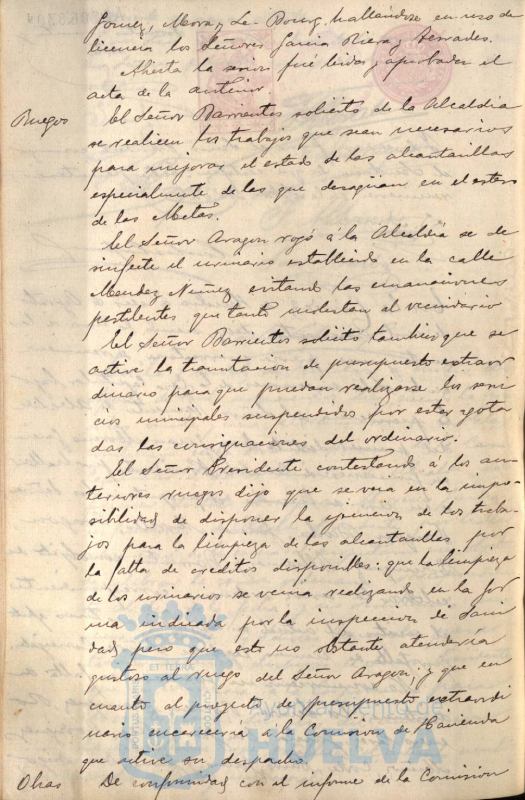 Gomez, Mora y Le-Bourg, hallándose en uso de
licencia los Señores Garcia Riera y Terrades.
Abierta la sesion fué leida y aprobada el
acta de la anterior.
Ruegos
El Señor Barrientos solicitó de la Alcaldía
se realicen los trabajos que sean necesarios
para mejorar el estado de las alcantarillas
especialmente de las que desagüan en el estero
de las Metas.
El Señor Aragon rogó á la Alcaldía se de
sinfecte el urinario establecido en la calle
Mendez Nuñez evitando las emanaciones
pestilentes que tanto molestan al vecindario
El Señor Barrientos solicitó tambien que se
active la tramitacion de presupuesto extraor
dinario para que puedan realizarse los servi
cios municipales suspendidos por estar agota
das las consignaciones del ordinario.
El Señor Presidente contestando á los an-
teriores ruegos dijo que se veia en la impo-
sibilidad de disponer la ejecucion de los traba-
jos para la limpieza de las alcantarillas por
la falta de creditos disponibles: que la limpieza
de los urinarios se venia realizando en la for
ma indicada por la inspeccion de Sani
dad, pero que esto no obstante atenderia
gustoso al ruego del Señor Aragon; y que en
cuanto al proyecto de presupuesto extraordi
nario encareceria á la Comision de Hacienda
que active su despacho.
Obras
De conformidad con el informe de la Comision
HUELVA